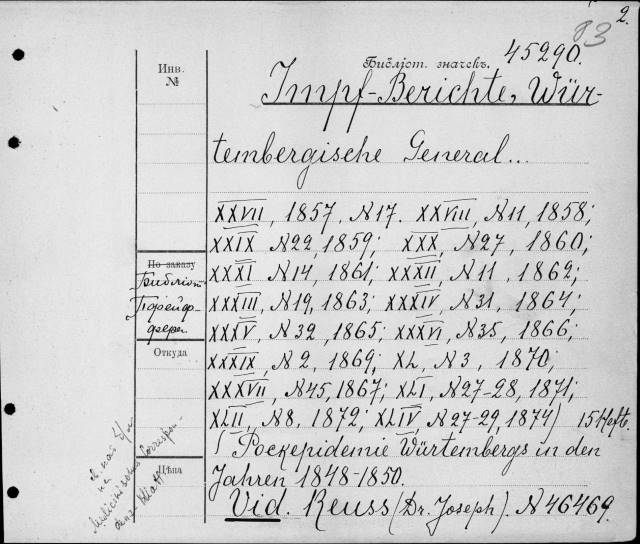 2.
83
Инв.
№
Библіот. значекъ.
45290.
Impf-Berichte, Wür-
tembergische General...
XXVII, 1857, N17. XXVIII, N11, 1858;
XXIX N22, 1859; XXX, N27, 1860;
XXXI N14, 1861; XXXII, N11, 1862;
XXXIII, N19, 1863; XXXIV, N31, 1864;
XXXV, N32, 1865; XXXVI, N35, 1866;
XXXIX, N2, 1869; XL, N3, 1870;
XXXVII, N45, 1867; XLI, N27-28, 1871;
XLII, N8, 1872; XLIV, N27-29, 1874) 15 Hefte.
( Pockepidemie Würtembergs in den
Jahren 1848-1850.
Vid. Reuss (Dr. Joseph). N46469.
По заказу
Библіот
Пфейф-
фера
Откуда
Цѣна
на
Medicinisches Correspon-
denz Blatt